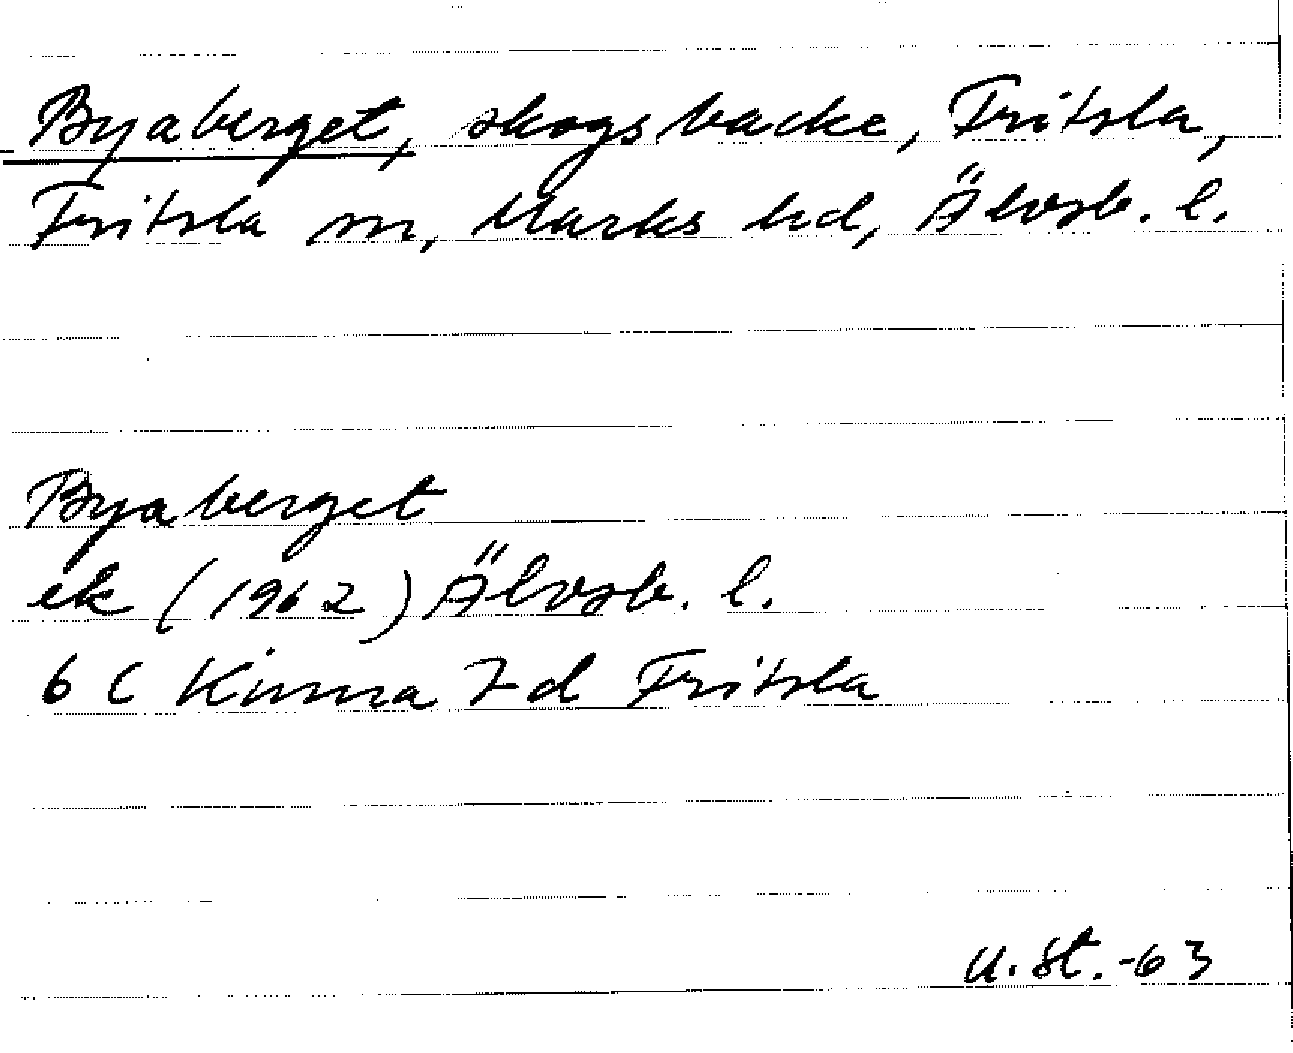 Byaberget, skogsbacke, Fritsla,
Fritsla sn, Marks hd, Älvsb. l.
Byaberget
ek (1962) Älvsb. l.
6 C Kinna 7 d Fritsla
U. St. -63